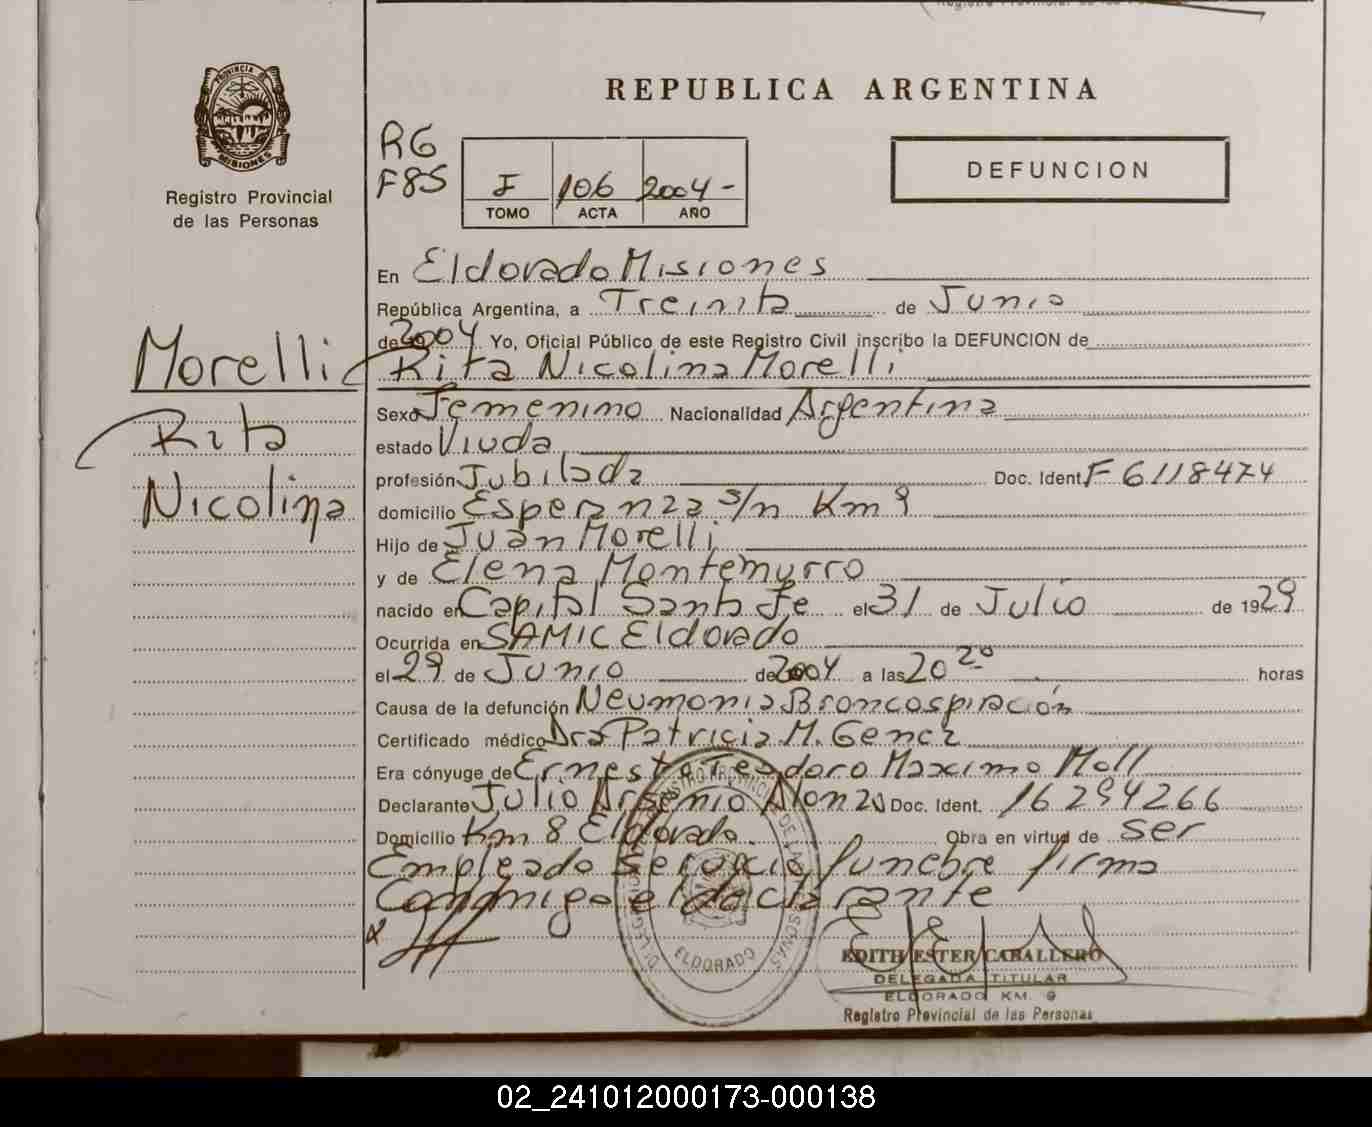 PROVINCIA DE
MISIONES
Registro Provincial
de las Personas
Morelli
Rita
Nicolina
REPUBLICA ARGENTINA
R6
F85
I 106 2004-
TOMO ACTA AÑO
DEFUNCION
En Eldorado Misiones
República Argentina, a Treinta de Junio
de 2004 Yo, Oficial Público de este Registro Civil inscribo la DEFUNCION de
Rita Nicolina Morelli
Sexo Femenino Nacionalidad Argentina
estado Viuda
profesión Jubilada Doc. Ident. F 6118474
domicilio Esperanza s/n Km 9
Hijo de Juan Morelli
y de Elena Montemurro
nacido en Capital Santa Fe el 31 de Julio de 1929
Ocurrida en SAMIC Eldorado
el 29 de Junio de 2004 a las 20 20 horas
Causa de la defunción Neumonia Broncoaspiración
Certificado médico Dra Patricia M. Gencz
Era cónyuge de Ernesto Teodoro Maximo Moll
Declarante Julio Arsenio Alonzo Doc. Ident. 16294266
Domicilio Km 8 Eldorado. Obra en virtud de ser
Empleado servicio funebre firma
Conmigo el declarante
ELDORADO
EDITH ESTER CABALLERO
DELEGADA TITULAR
ELDORADO KM. 9
Registro Provincial de las Personas
02_241012000173-000138